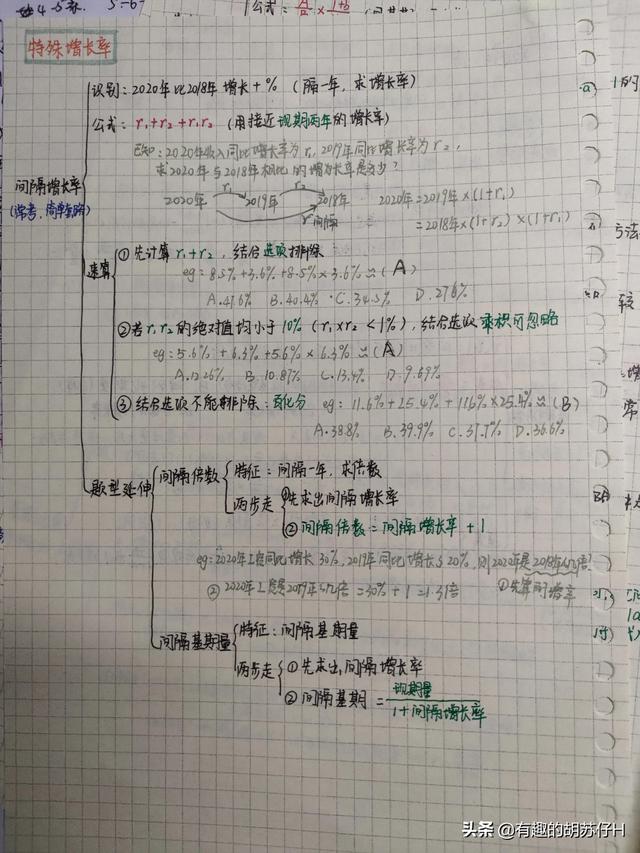 4-5
5-6
公式:
特殊增长率
间隔增长率
识别: 2020年比2018年增长+% (隔一年, 求增长率)
公式: r₁+r₂+r₁r₂ (用接近现期两年的增长率)
已知: 2020年收入同比增长率为r₁, 2019年同比增长率为r₂,
求2020年与2018年相比的增长率是多少?
r₁ r₂
2020年 2019年 2018年
r间隔
2020年=2019年×(1+r₁)
=2018年×(1+r₂)×(1+r₁)
速算
①先计算r₁+r₂, 结合选项排除
eg: 8.5%+3.6%+8.5%×3.6%≈(A)
B.40.4% C.34.5% D.27.6%
②若r₁r₂的绝对值均小于10% (r₁×r₂<1%), 结合选项乘积可忽略
eg: 5.6%+6.3%+5.6%×6.3%≈(A)
B.10.87% C.13.4% D.9.69%
③结合选项不能排除: 百化分 eg: 11.6%+25.4%+11.6%×25.4%≈(B)
A.38.8% B.39.9% C.37.7% D.36.6%
题型延伸
间隔倍数
特征: 间隔一年, 求倍数
两步走
①先求出间隔增长率
②间隔倍数=间隔增长率+1
eg: 2020年工资同比增长30%, 2019年同比增长20%, 则2020年是2018年的几倍?
①先算间增率
间隔基期量
特征: 间隔基期量
两步走
①先求出间隔增长率
②间隔基期=现期量
1+间隔增长率
头条 @有趣的胡苏仔H